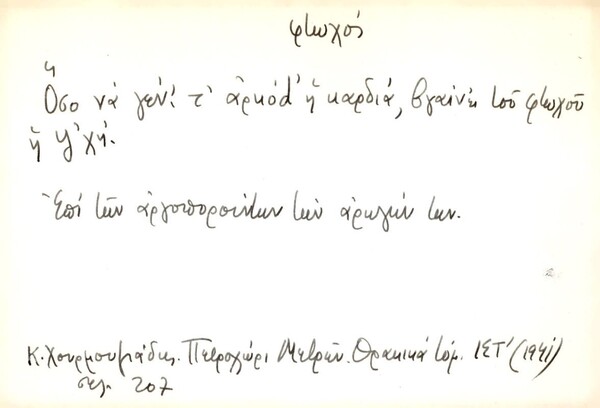 φτωχός
Ὅσο νά γέν! τ' ἀρκόδ' ἡ καρδιά, βγαίν' τοῦ φτωχοῦ
ἡ ψ'χή.
Ἐπί τῶν ἀργοπορούντων τήν ἀρωγήν των.
Κ. Χουρμουζιάδης. Πετροχώρι Μετρῶν. Θρακικά τόμ. ΙΣΤ' (1941)
σελ. 207